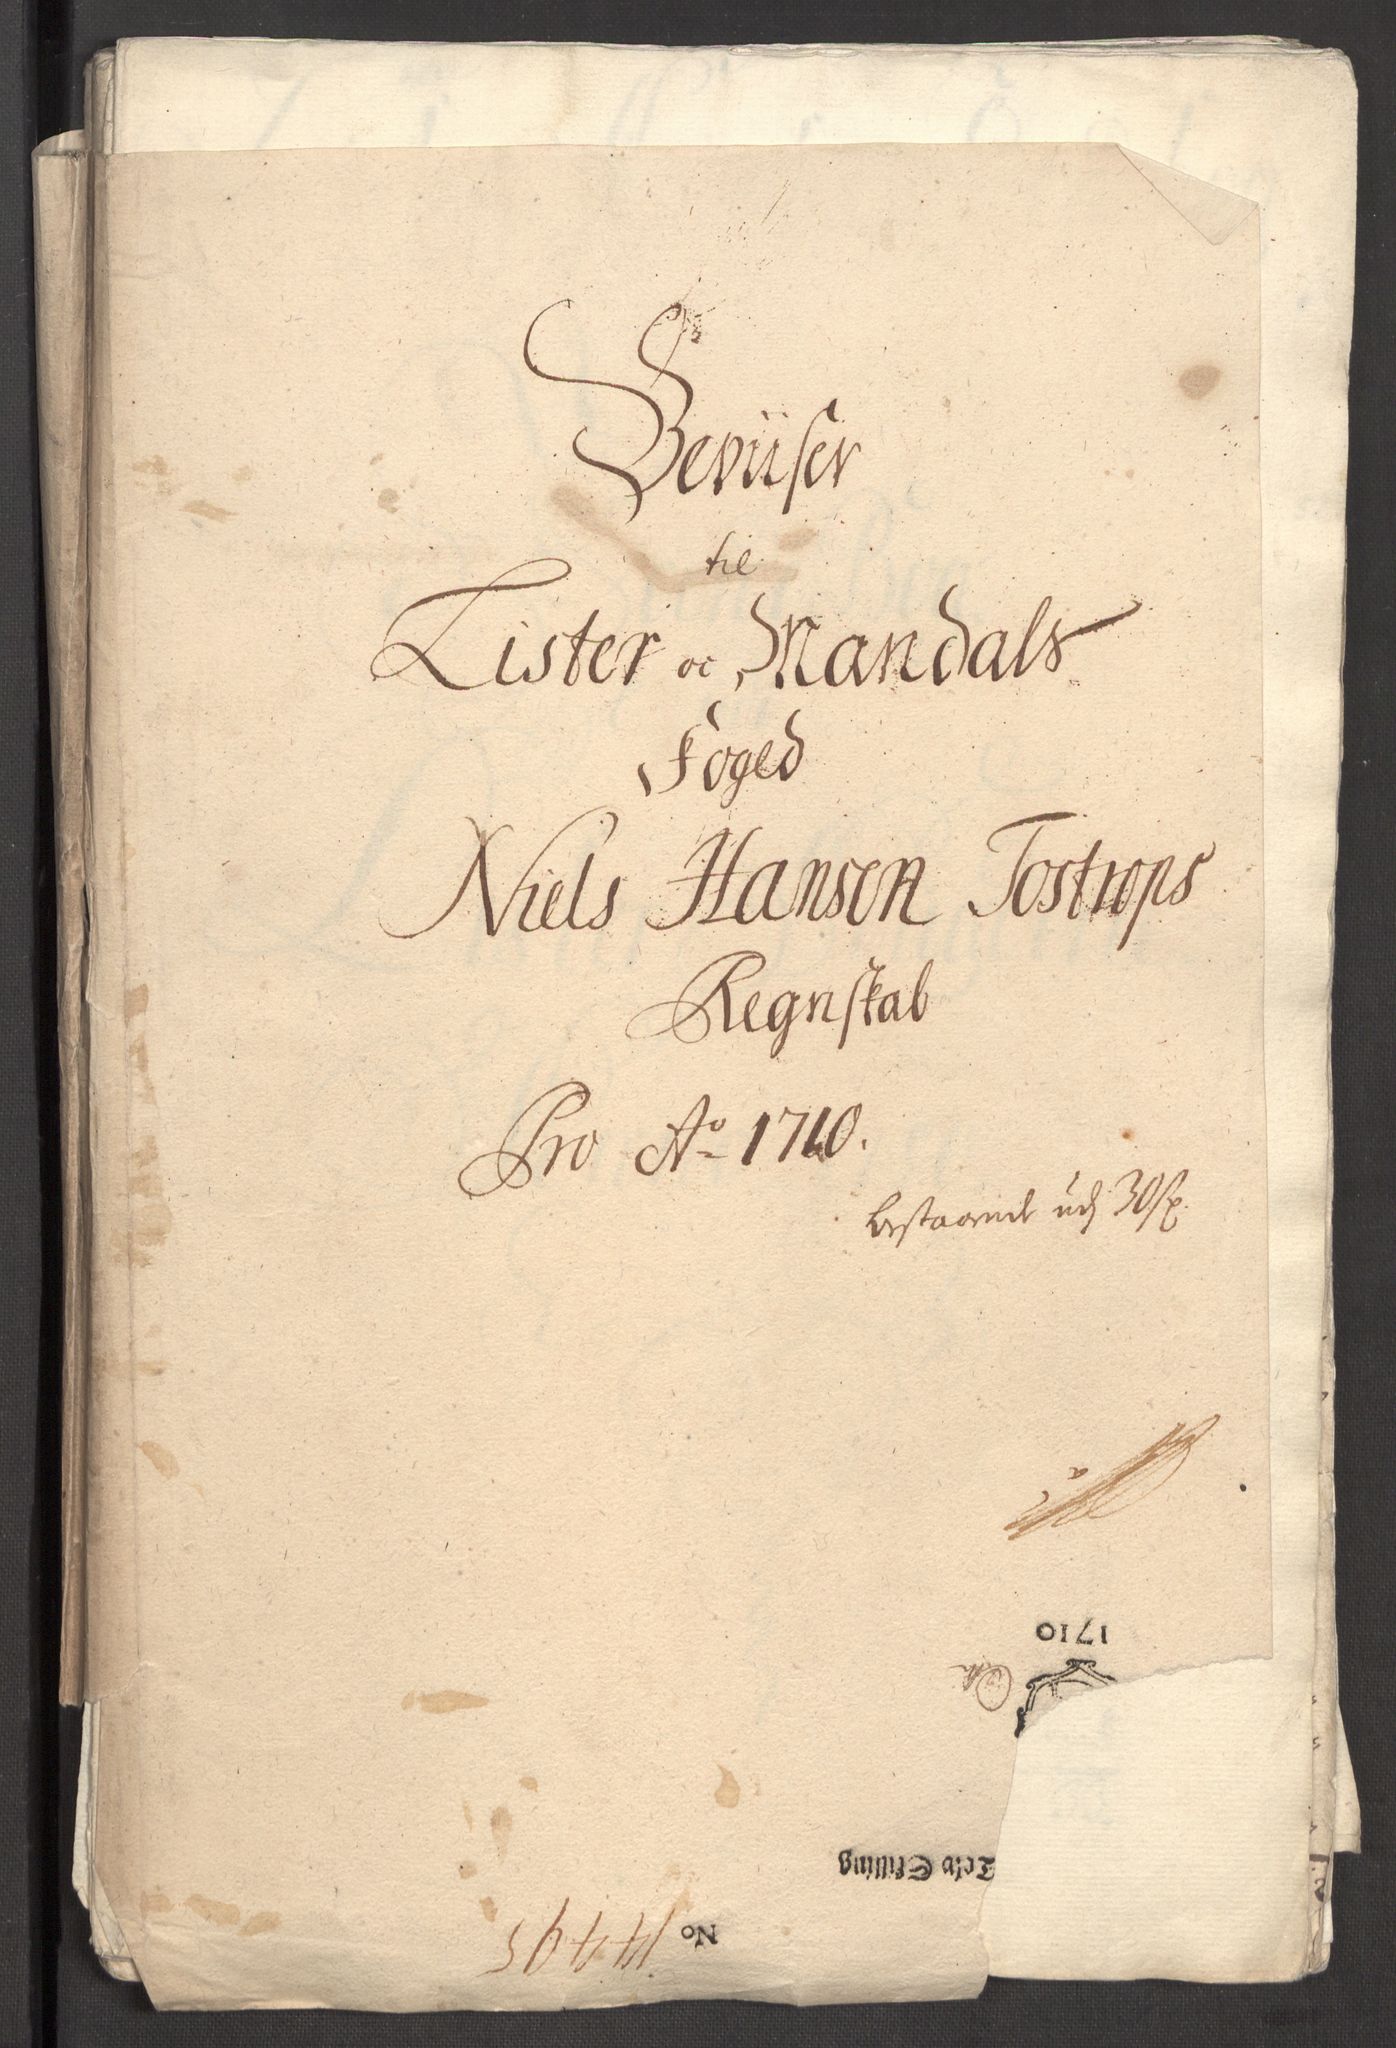 Beviiser
til
Lister oc Mandals
Foged
Niels Hansen Tostrops
Regnskab
Pro Ao 1710.
bestaaende udj 30 sp.
1710
Tolv Skilling
No 14495